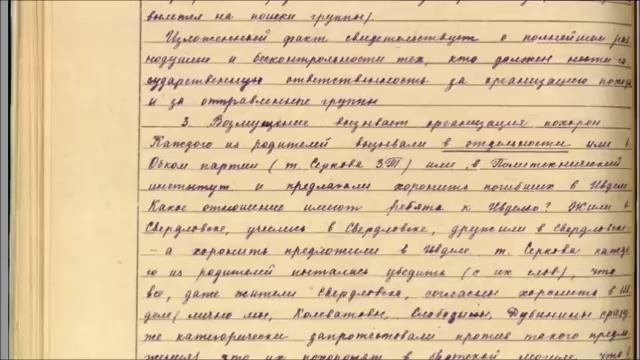 вылетел на поиски группы).
Изложенный факт свидетельствует о полнейшем рав
нодушии и бесконтрольности тех, кто должен нести го
сударственную ответственность за организацию похода
и за отправленные группы
3. Возмущение вызывает организация похорон
Каждого из родителей вызывали в отдельности или в
Обком партии (т. Серкова З.Т) или в Политехнический
институт и предлагали хоронить погибших в Ивделе
Какое отношение имеют ребята к Ивделю? Жили в
Свердловске, учились в Свердловске, дружили в Свердловске
- а хоронить предложили в Ивделе. т. Серкова каждо
го из родителей пыталась убедить (с их слов), что
все, даже жители Свердловска, согласны хоронить в Ив
деле (лично мы, Колеватовы, Слободины, Дубинины сразу
же категорически запротестовали против такого предло
жения) что их похоронят в братской могиле, что